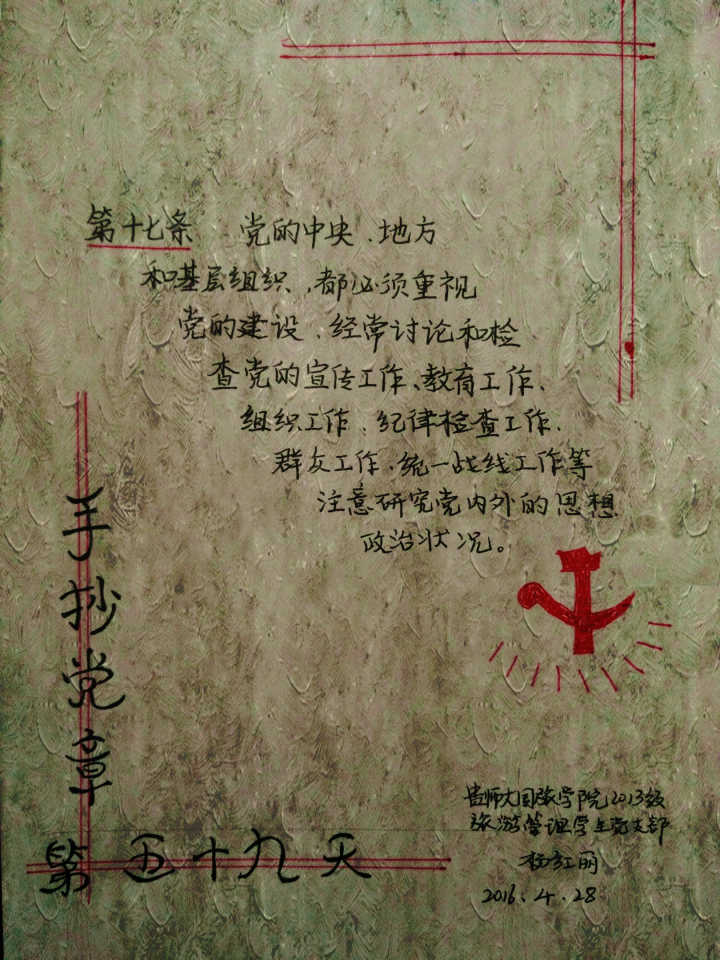 第十七条 党的中央、地方
和基层组织,都必须重视
党的建设、经常讨论和检
查党的宣传工作、教育工作、
组织工作、纪律检查工作、
群众工作、统一战线工作等
注意研究党内外的思想
政治状况。
手抄党章
第五十九天
贵师大国旅学院2013级
旅游管理学生党支部
杨红丽
2016.4.28